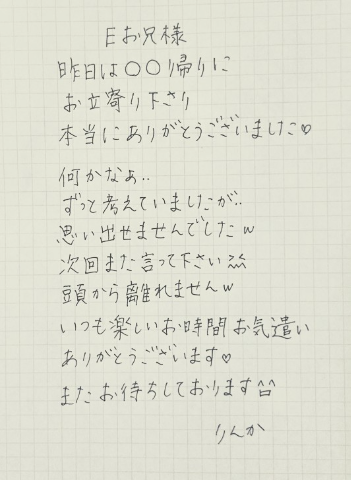 Eお兄様
昨日は○○帰りに
お立寄り下さり
本当にありがとうございました♡
何かなぁ..
ずっと考えていましたが..
思い出せませんでしたw
次回また言って下さい^^;
頭から離れませんw
いつも楽しいお時間お気遣い
ありがとうございます♡
またお待ちしております^^
りんか